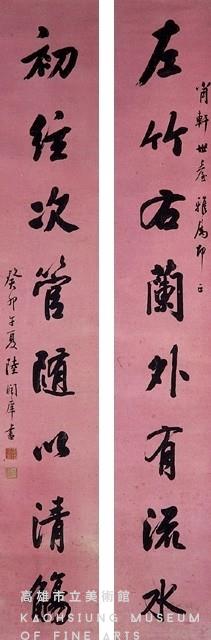 甫軒世臺雅屬即正
左竹右蘭外有流水
初絃次管隨以清觴
癸卯午夏陸潤庠書
高雄市立美術館
KAOHSIUNG MUSEUM
OF FINE ARTS